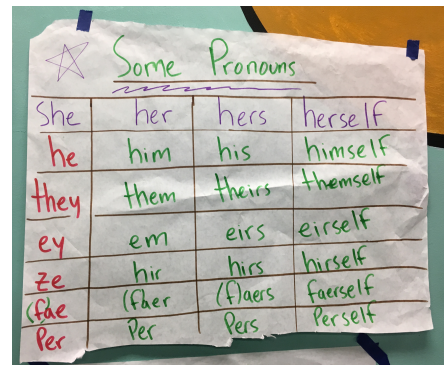 Some Pronouns
She her hers herself
he him his himself
they them theirs themself
ey em eirs eirself
ze hir hirs hirself
(fae (f)aer (f)aers faerself
Per Per Pers Perself